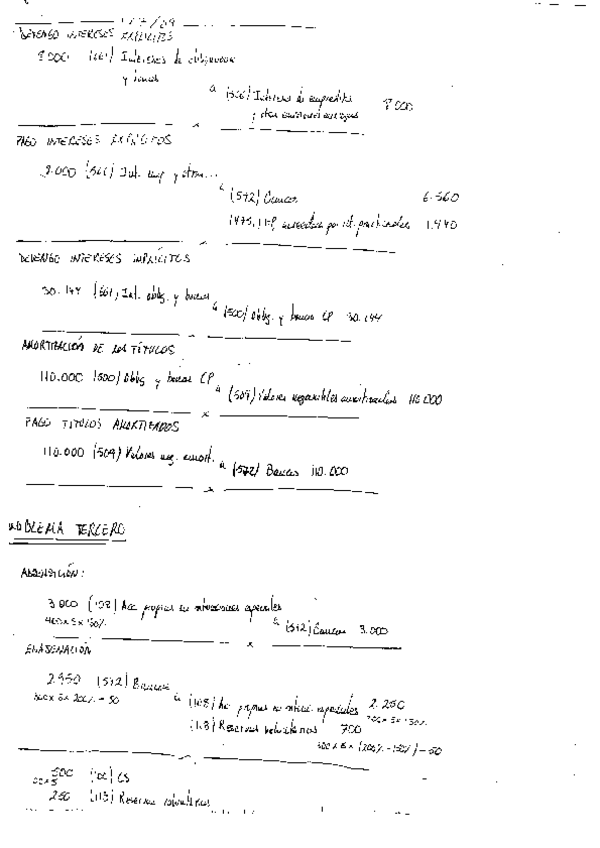 1/7/09
DEVENGO INTERESES EXPLÍCITOS
8000 (661) Intereses de obligaciones
y bonos
a (506) Intereses de empréstitos 8000
y otras emisiones análogas
x
PAGO INTERESES EXPLÍCITOS
8.000 (506) Int. emp y otras...
a (572) Bancos 6.560
(475.) HP, acreedora por ret. practicadas 1.440
DEVENGO INTERESES IMPLÍCITOS
30.144 (661) Int. oblig. y bonos
a (500) Oblig. y bonos CP 30.144
AMORTIZACIÓN DE LOS TÍTULOS
110.000 (500) Oblig y bonos CP
a (509) Valores negociables amortizados 110.000
x
PAGO TITULOS AMORTIZADOS
110.000 (509) Valores neg. amort.
a (572) Bancos 110.000
x
PROBLEMA TERCERO
ADQUISICIÓN:
3.000 (108) Acc propias en situaciones especiales
400x5x150%
a (572) Bancos 3.000
x
ENAJENACIÓN
2950 (572) Bancos
300x5x200% - 50
a (108) Ac propias en situac. especiales 2.250
300x5x150%
(113) Reservas voluntarias 700
300x5x(200%-150%)-50
500 (100) CS
100x5
250 (113) Reservas voluntarias